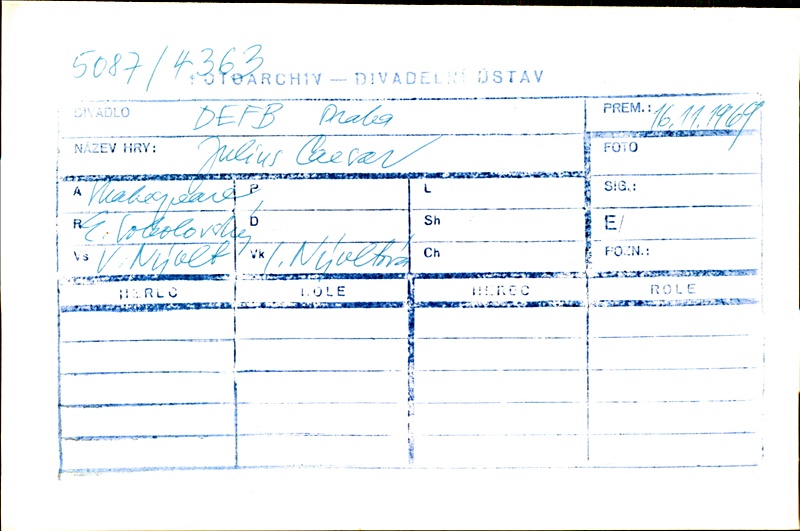 5087/4363
FOTOARCHIV — DIVADELNÍ ÚSTAV
DIVADLO DEFB Praha PREM.: 16.11.1969
NÁZEV HRY: Julius Caesar FOTO
A Shakespeare P L SIG.:
R E. Sokolovský D Sh E/
Vs V. Nývlt Vk J. Nývltová Ch POZN.:
HEREC ROLE HEREC ROLE